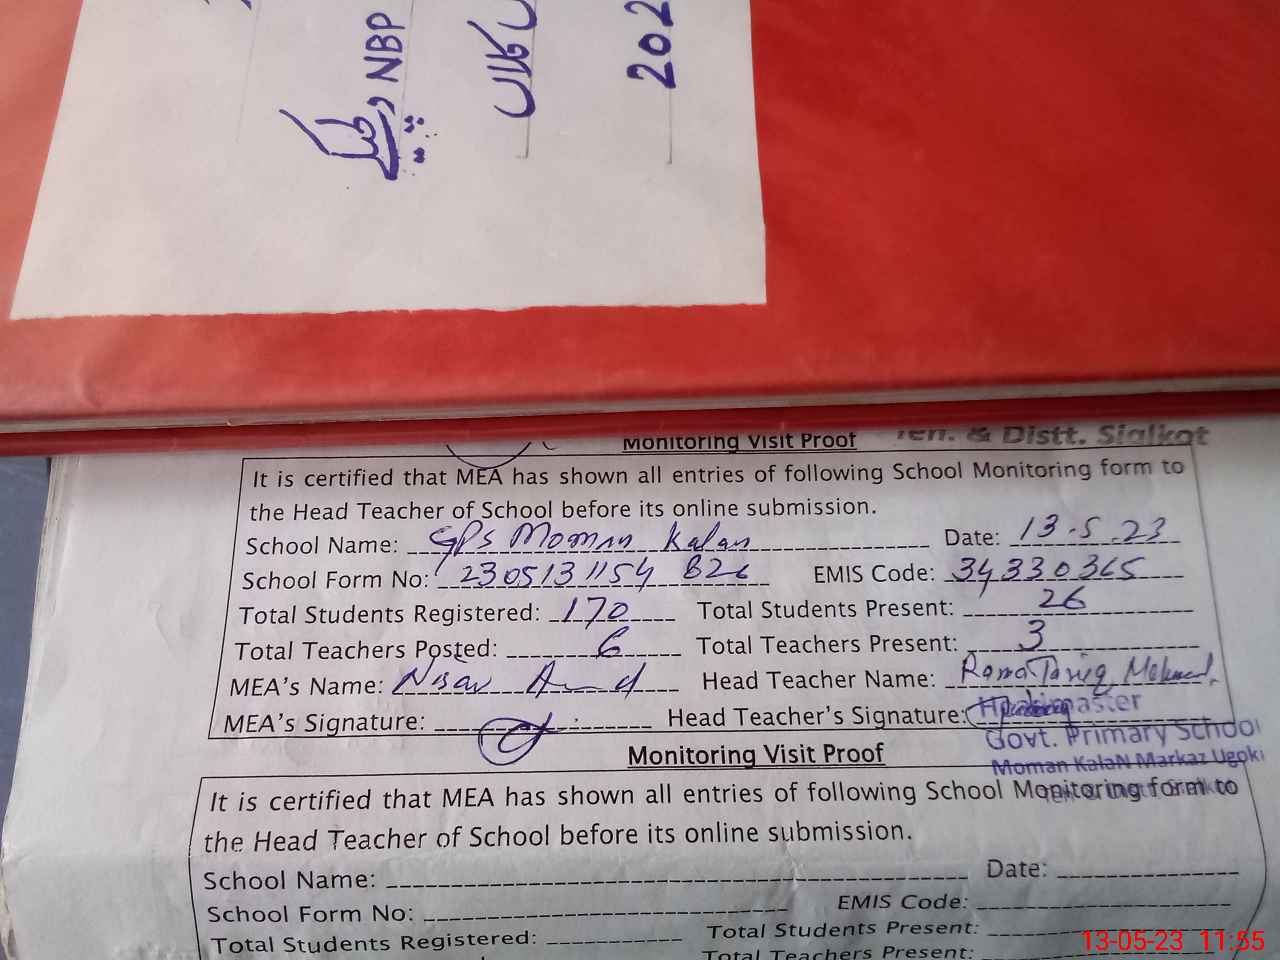 NBP
کلاں
202
Monitoring Visit Proof
Teh. & Distt. Sialkot
It is certified that MEA has shown all entries of following School Monitoring form to
the Head Teacher of School before its online submission.
School Name: GPS Moman Kalan Date: 13.5.23
School Form No: 2305131154 826 EMIS Code: 34330365
Total Students Registered: 170 Total Students Present: 26
Total Teachers Posted: 6 Total Teachers Present: 3
MEA's Name: Nisar Head Teacher Name: Rana Tariq Mehmood
MEA's Signature: Head Teacher's Signature:
Headmaster
Govt. Primary School
Moman KalaN Markaz Ugoki
Monitoring Visit Proof
It is certified that MEA has shown all entries of following School Monitoring form to
the Head Teacher of School before its online submission.
School Name: Date:
School Form No: EMIS Code:
Total Students Registered: Total Students Present:
Total Teachers Present:
13-05-23 11:55